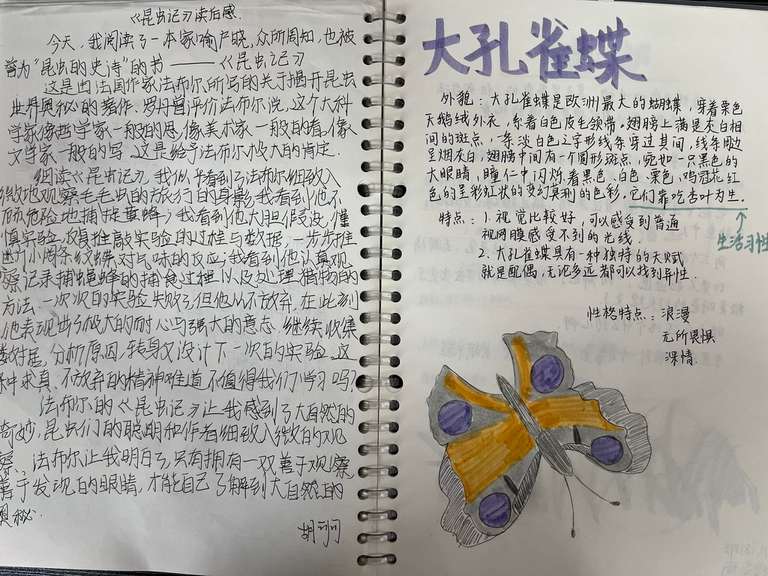 《昆虫记》读后感.
今天，我阅读了一本家喻户晓，众所周知，也被
誉为"昆虫的史诗"的书——《昆虫记》
这是由法国作家法布尔所写的关于揭开昆虫
世界奥秘的著作. 罗丹曾评价法布尔说，这个大科
学家像哲学家一般的思，像美术家一般的看，像
文学家一般的写. 这是给予法布尔极大的肯定.
细读《昆虫记》，我似乎看到了法布尔细致入
微地观察毛毛虫的旅行的身影，我看到他不
顾危险地捕捉黄蜂；我看到他大胆假设，谨
慎实验，反复推敲实验的过程与数据，一步步推
断小阔条纹蝶对气味的反应；我看到他认真观
察记录捕蝇蜂的捕食过程以及处理猎物的
方法. 一次次的实验失败了，但他从不放弃. 在此刻
他表现出了极大的耐心与强大的意志. 继续收集
数据，分析原因，转身又设计下一次的实验. 这
种求真、不放弃的精神难道不值得我们学习吗？
法布尔的《昆虫记》让我感到了大自然的
奇妙，昆虫们的聪明和作者细致入微的观
察. 法布尔让我明白了，只有拥有一双善于观察，
善于发现的眼睛，才能自己了解到大自然的
奥秘.
大孔雀蝶
外貌：大孔雀蝶是欧洲最大的蝴蝶，穿着栗色
天鹅绒外衣，系着白色皮毛领带. 翅膀上满是灰白相
间的斑点，一条淡白色之字形线条穿过其间，线条周边
呈烟灰白，翅膀中间有一个圆形斑点，宛如一只黑色的
大眼睛，瞳仁中闪烁着黑色、白色、栗色、鸡冠花红
色的呈彩虹状的变幻莫测的色彩. 它们靠吃杏叶为生.
生活习性
特点：1. 视觉比较好，可以感受到普通
视网膜感受不到的光线.
2. 大孔雀蝶具有一种独特的天赋
就是配偶，无论多远都可以找到异性.
性格特点：浪漫
无所畏惧
深情